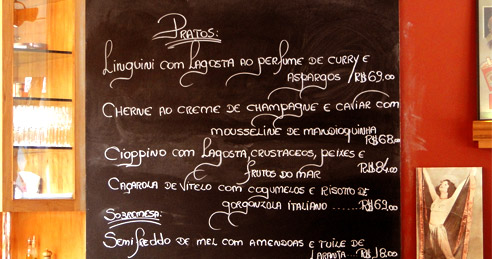 PRATOS:
LINGUINI COM LAGOSTA AO PERFUME DE CURRY E
ASPARGOS /R$69,00
CHERNE AO CREME DE CHAMPAGNE E CAVIAR COM
MOUSSELINE DE MANDIOQUINHA
R$68,00
CIOPPINO COM LAGOSTA, CRUSTACEOS, PEIXES E
FRUTOS DO MAR R$84,00
CAÇAROLA DE VITELO COM COGUMELOS E RISOTTO DE
GORGONZOLA ITALIANO ...... R$69,00
SOBREMESA:
SEMIFREDDO DE MEL COM AMENDOAS E TUILE DE
LARANJA .... R$18,00